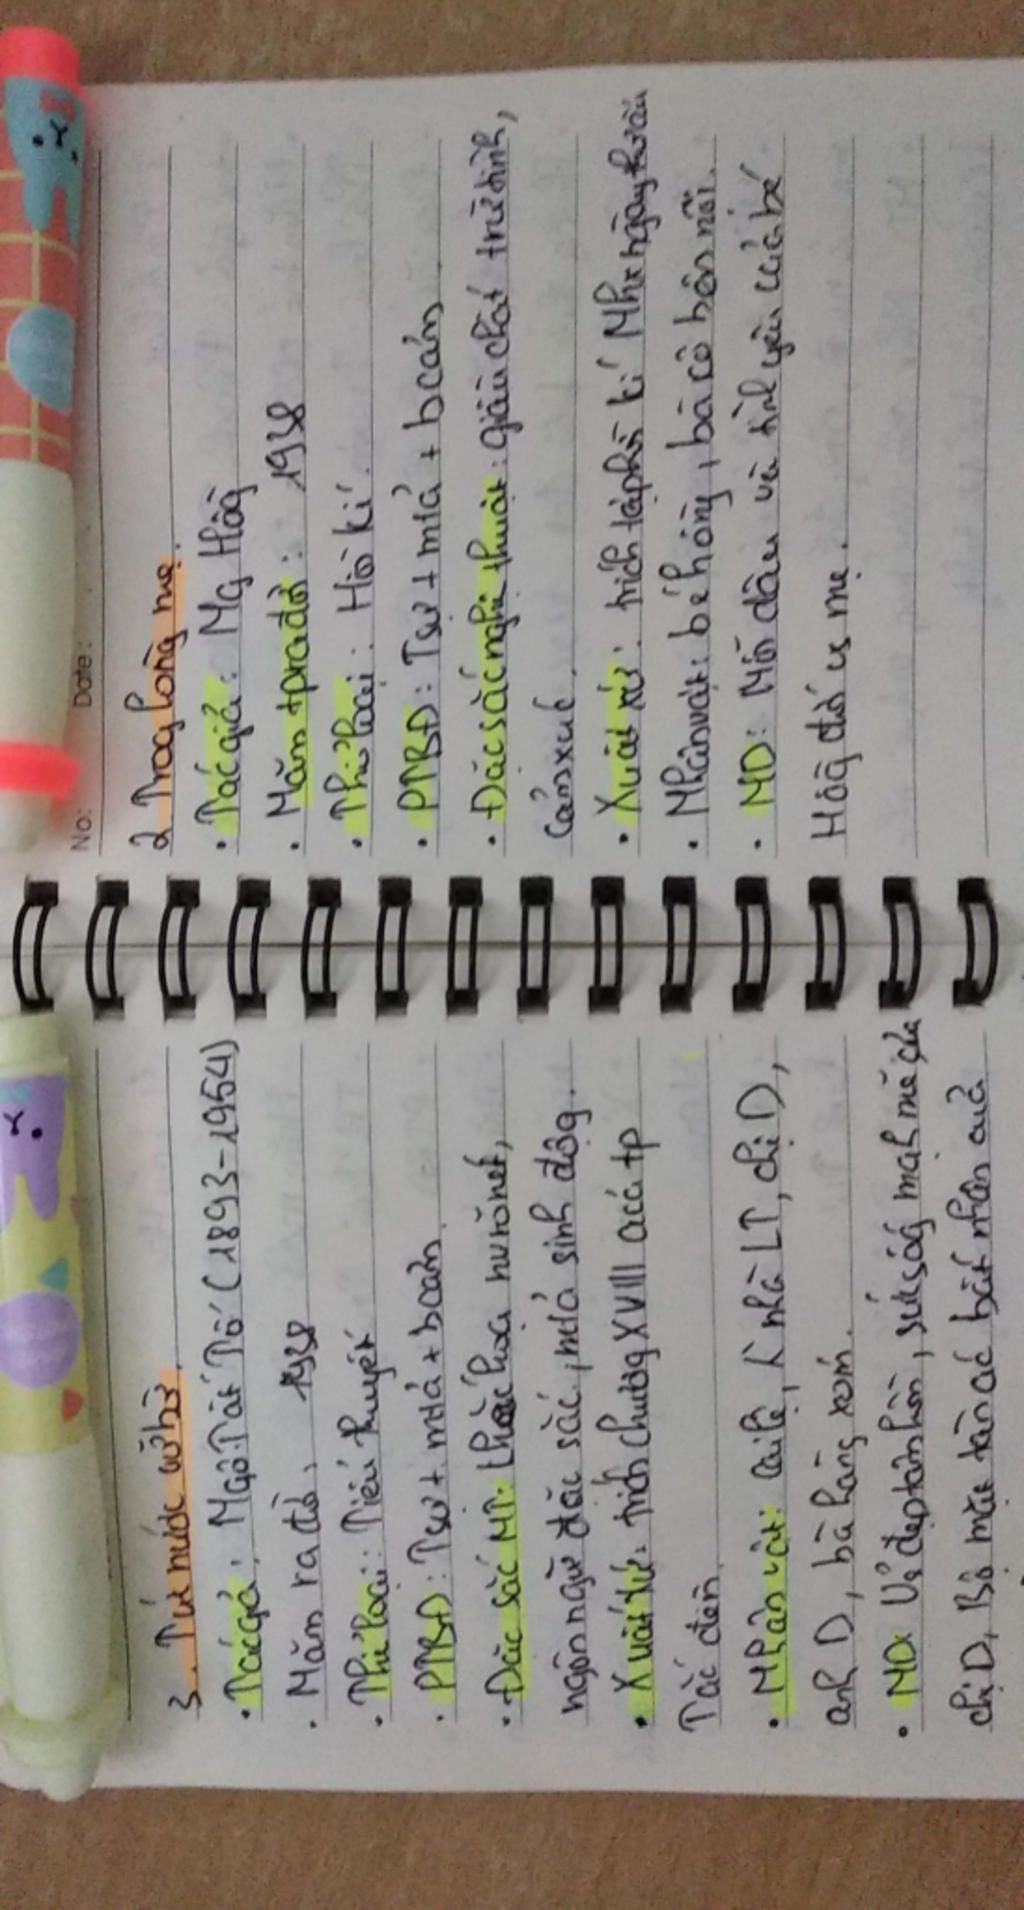 No: Date:
2. Trog lòng mẹ.
• Tác giả: Ng Hồg
• Năm tp ra đời: 1938
• Thể loại: Hồi kí.
• PTBĐ: Tự sự + mtả + bcảm
• Đặc sắc nghệ thuật: giàu chất trữ tình,
cảm xúc.
• Xuất xứ: trích tập hồi kí Những ngày thơ ấu
• Nhân vật: bé hồng, bà cô bên nội.
• ND: Nỗi đau và tình yêu của bé
Hồg đối vs mẹ.
3. Tức nước vỡ bờ.
• Tác giả: Ngô Tất Tố (1893-1954)
• Năm ra đời: 1938
• Thể loại: Tiểu thuyết
• PTBĐ: Tự sự + mtả + bcảm.
• Đặc sắc NT: khắc hoạ nv rõ nét,
ngôn ngữ đặc sắc, mtả sinh độg.
• Xuất xứ: trích chươg XVIII của tp
Tắt đèn.
• Nhân vật: cai lệ, nhà LT, chị D,
anh D, bà hàng xóm.
• ND: Vẻ đẹp tâm hồn, sức sốg mạnh mẽ của
chị D, Bộ mặt tàn ác bất nhân của